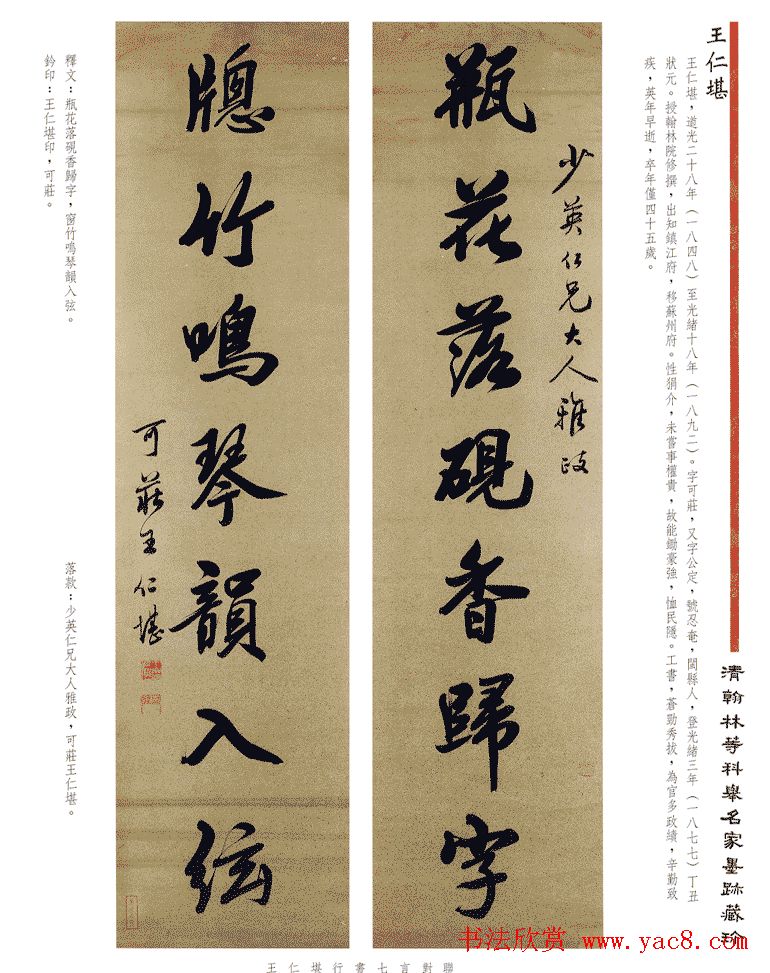 王仁堪
王仁堪，道光二十八年（一八四八）至光緒十八年（一八九二）。字可莊，又字公定，號忍奄，閩縣人，登光緒三年（一八七七）丁丑
狀元。授翰林院修撰，出知鎮江府，移蘇州府。性狷介，未嘗事權貴，故能鋤豪強，恤民隱。工書，蒼勁秀拔，為官多政績，辛勤致
疾，英年早逝，卒年僅四十五歲。
清翰林等科舉名家墨跡藏珍
少英仁兄大人雅政
瓶花落硯香歸字
牕竹鳴琴韻入弦
可莊王仁堪
釋文：瓶花落硯香歸字，窗竹鳴琴韻入弦。
落款：少英仁兄大人雅政，可莊王仁堪。
鈐印：王仁堪印，可莊。
王仁堪行書七言對聯
书法欣赏 www.yac8.com